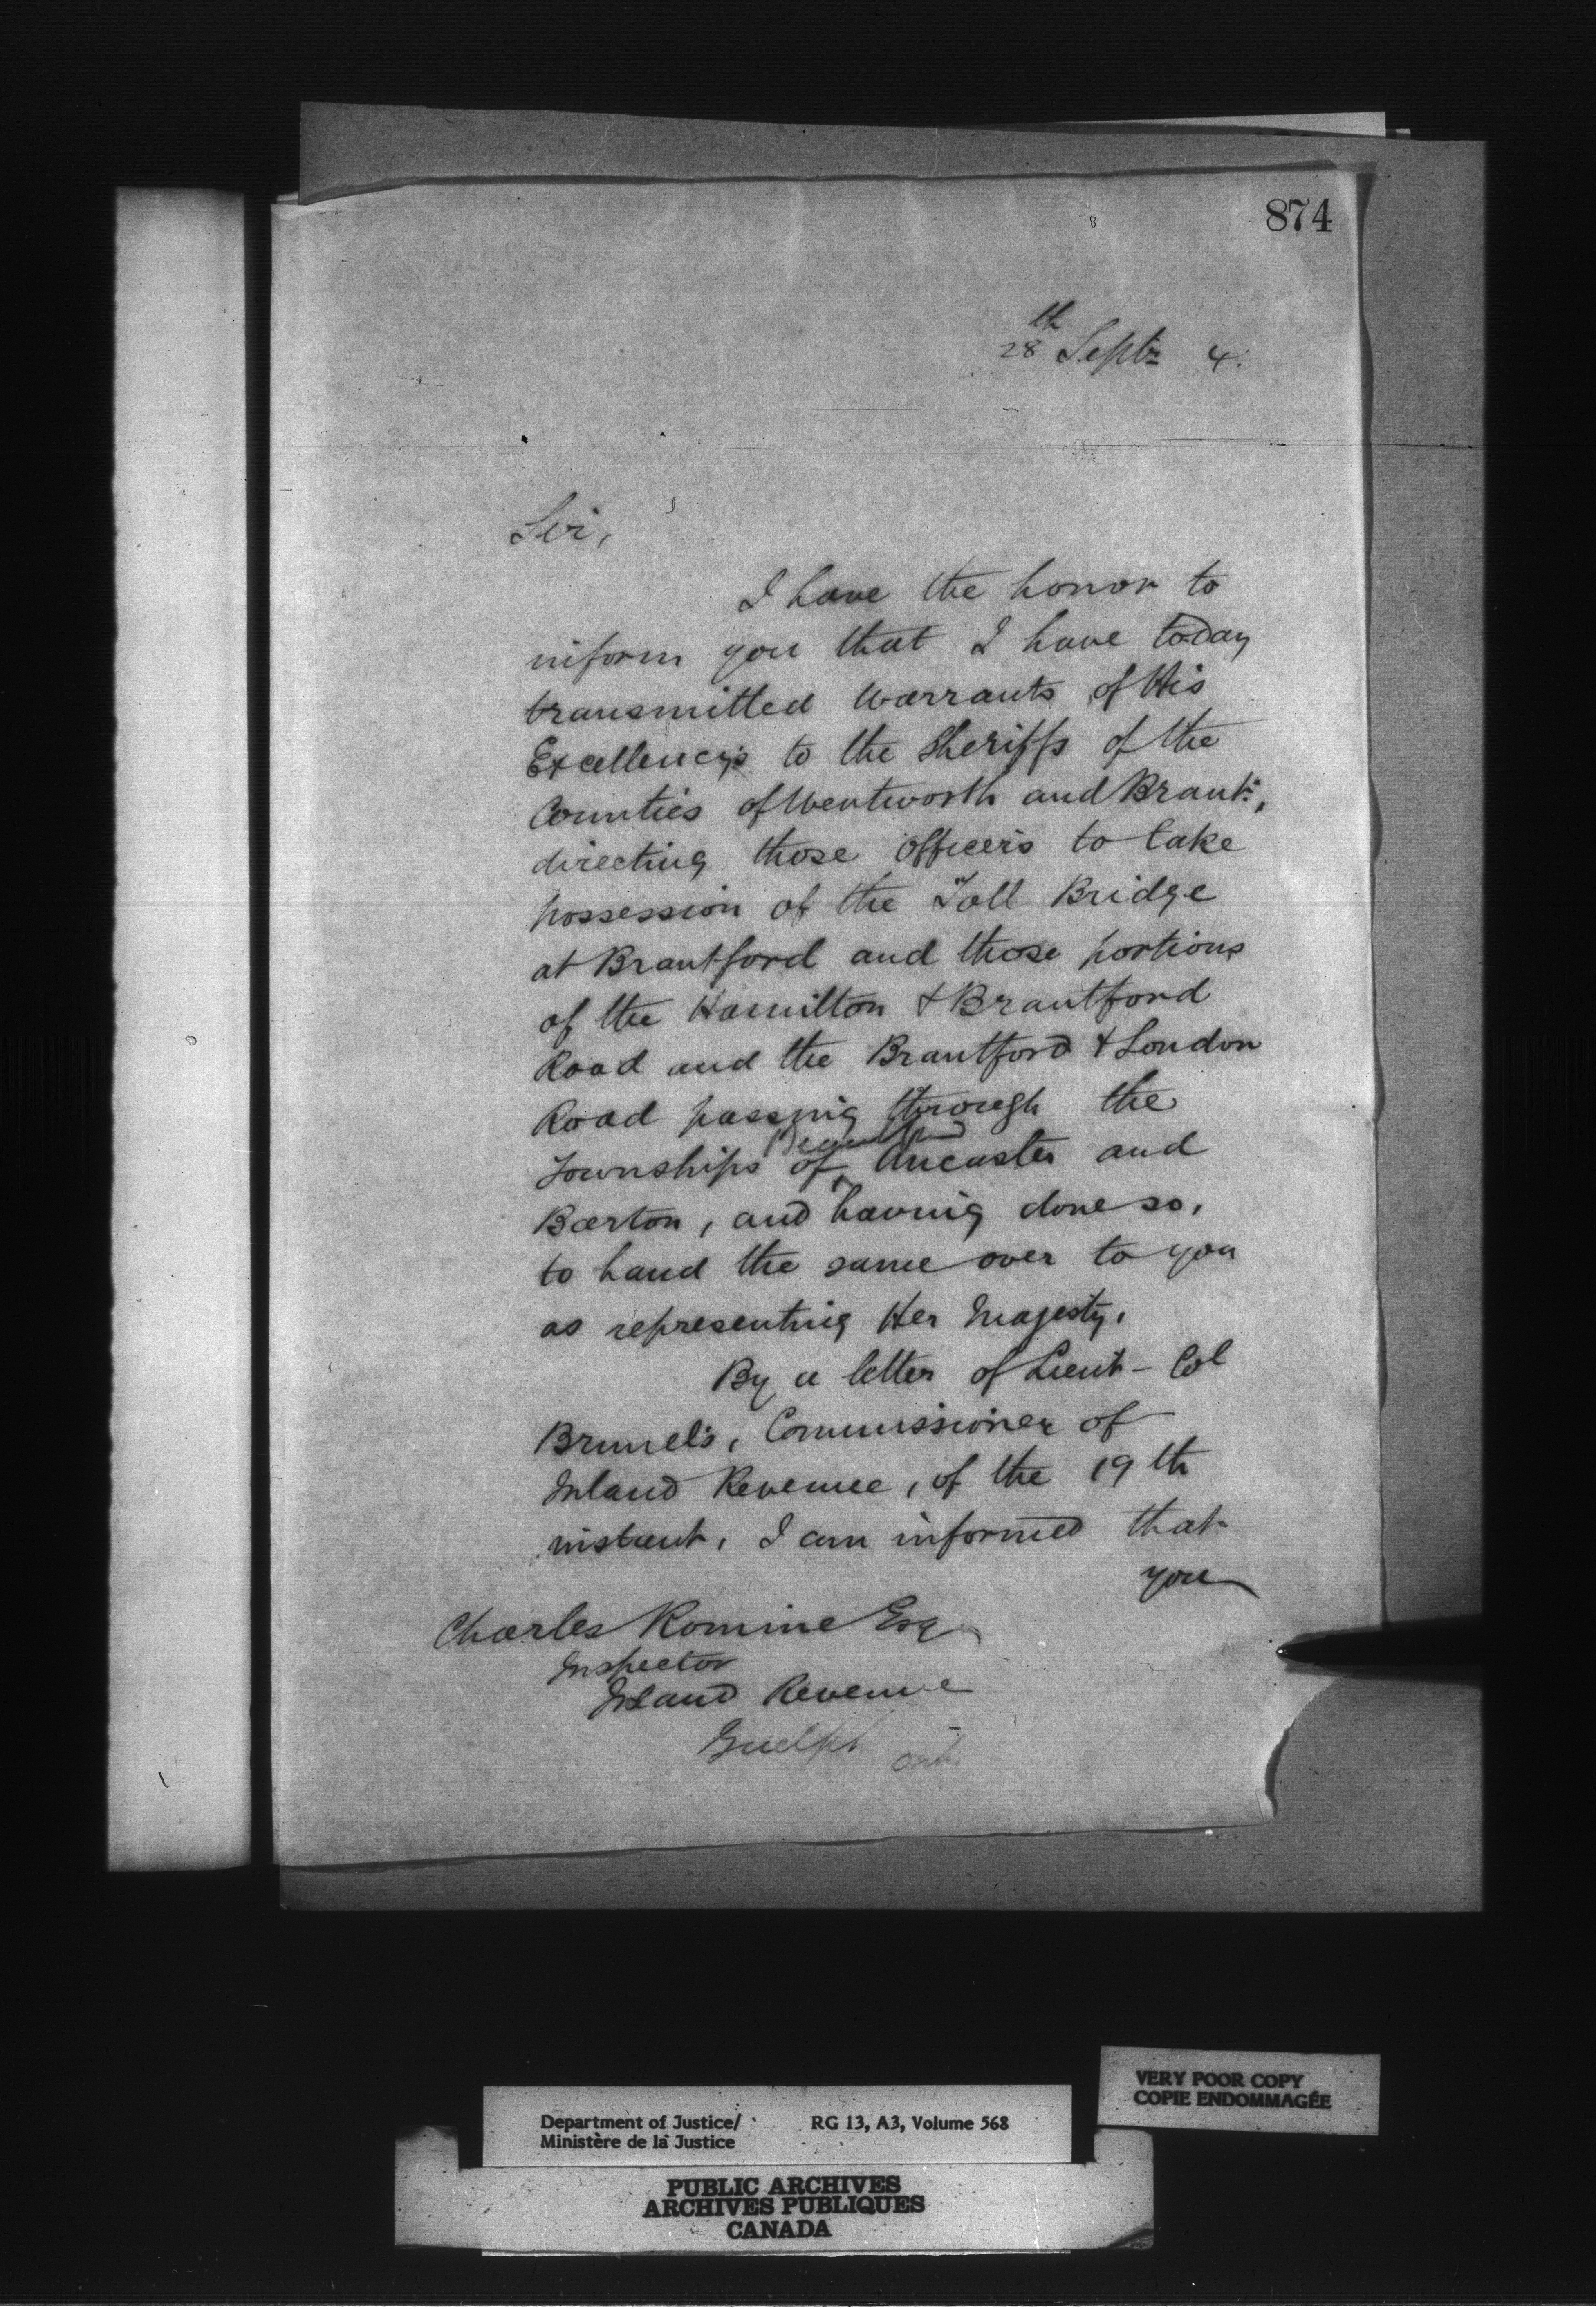 874
28th Septr 4.
Sir,
I have the honor to
inform you that I have today
transmitted Warrants of His
Excellency's to the Sheriffs of the
Counties of Wentworth and Brant,
directing those Officers to take
possession of the Toll Bridge
at Brantford and those portions
of the Hamilton & Brantford
Road and the Brantford & London
Road passing through the
Brantford
Townships of Ancaster and
Barton, and having done so,
to hand the same over to you
as representing Her Majesty.
By a letter of Lieut-Col
Brunel's, Commissioner of
Inland Revenue, of the 19th
instant, I am informed that
you
Charles Romine Esq
Inspector
Inland Revenue
Guelph Ont.
VERY POOR COPY
COPIE ENDOMMAGÉE
Department of Justice/ RG 13, A3, Volume 568
Ministère de la Justice
PUBLIC ARCHIVES
ARCHIVES PUBLIQUES
CANADA